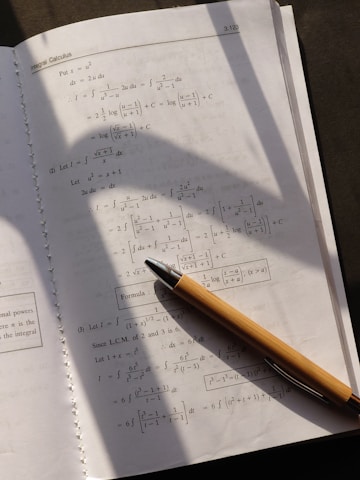 Integral Calculus
3.100
Put x = u²
dx = 2u du
I = ∫ 1/(u³ − u) 2u du = ∫ 2/(u² − 1) du
= 2 · 1/2 log ((u − 1)/(u + 1)) + C = log ((u − 1)/(u + 1)) + C
= log ((√x − 1)/(√x + 1)) + C
(2) Let I = ∫ √(x + 1)/x dx
Let u² = x + 1
2u du = dx
I = ∫ u/(u² − 1) 2u du = ∫ 2u²/(u² − 1) du
= 2 ∫ [(u² − 1)/(u² − 1) + 1/(u² − 1)] du = 2 ∫ [1 + 1/(u² − 1)] du
= 2 [∫ du + ∫ 1/(u² − 1) du] = 2 [u + 1/2 log ((u − 1)/(u + 1))] + C
2 √(x + 1) + 1 − 1 + 1 + 1 + C
Formula 1/2a log ((x − a)/(x + a)); (x > a)
(3) Let I = ∫
Since L.C.M. of 2 and 3 is 6
Let 1 + x = t⁶ ∴ dx = 6t⁵ dt
I = ∫ dt
= 6 ∫ (t³ − 1 + 1)/(t − 1) dt
= 6 ∫ [(t³ − 1)/(t − 1) + 1/(t − 1)] dt = 6 ∫ [(t² + t + 1) +
onal powers
ere n is the
s the integral